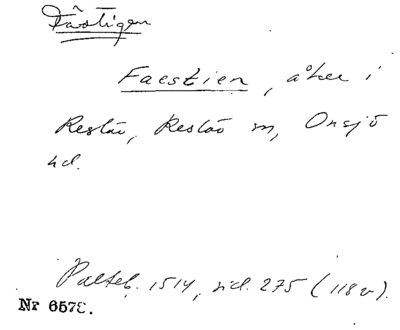 Fästigen
Faestien, åker i
Restão, Restão sn, Onsjö
hd.
Palteb. 1514, sid. 275 (118v).
Nr 6578.